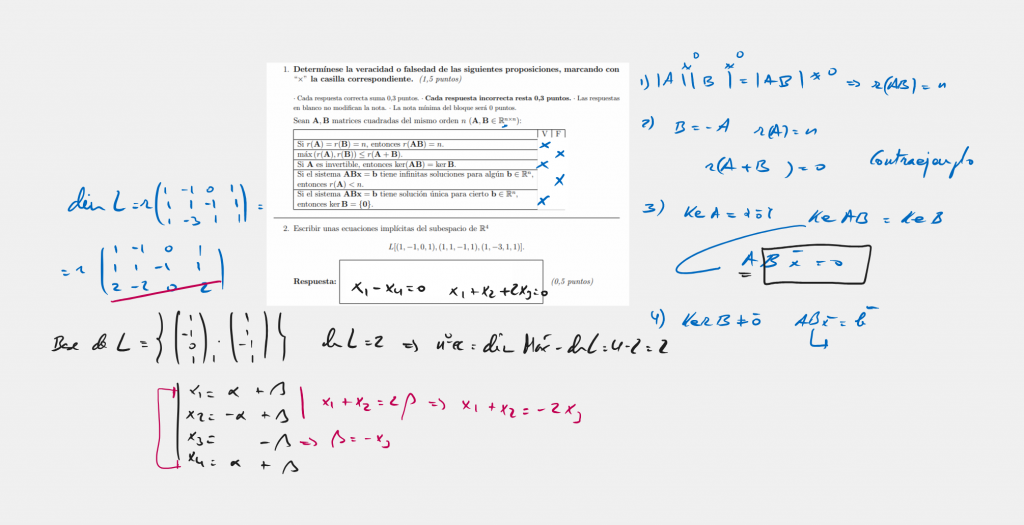 1. Determínese la veracidad o falsedad de las siguientes proposiciones, marcando con
"×" la casilla correspondiente. (1,5 puntos)
· Cada respuesta correcta suma 0,3 puntos. · Cada respuesta incorrecta resta 0,3 puntos. · Las respuestas
en blanco no modifican la nota. · La nota mínima del bloque será 0 puntos.
Sean A, B matrices cuadradas del mismo orden n (A, B ∈ ℝⁿˣⁿ):
V F
Si r(A) = r(B) = n, entonces r(AB) = n. ×
máx (r(A), r(B)) ≤ r(A + B). ×
Si A es invertible, entonces ker(AB) = ker B. ×
Si el sistema ABx = b tiene infinitas soluciones para algún b ∈ ℝⁿ,
entonces r(A) < n. ×
Si el sistema ABx = b tiene solución única para cierto b ∈ ℝⁿ,
entonces ker B = {0}. ×
2. Escribir unas ecuaciones implícitas del subespacio de ℝ⁴
L[(1, −1, 0, 1), (1, 1, −1, 1), (1, −3, 1, 1)].
Respuesta: x₁ - x₄ = 0 x₁ + x₂ + 2x₃ = 0 (0,5 puntos)
dim L = r
1 -1 0 1
1 1 -1 1
1 -3 1 1
=
= r
1 -1 0 1
1 1 -1 1
2 -2 0 2
Base de L = { (1 -1 0 1), (1 1 -1 1) } dim L = 2 ⇒ nº ec = dim - dim L = 4 - 2 = 2
x₁ = α + β
x₂ = -α + β
x₃ = -β ⇒ β = -x₃
x₄ = α + β
x₁ + x₂ = 2β ⇒ x₁ + x₂ = -2x₃
1) |A| |B| = |AB| ≠ 0 ⇒ r(AB) = n
≠ 0 ≠ 0
2) B = -A r(A) = n
r(A + B) = 0 Contraejemplo
3) Ke A = {0̄} Ke AB = Ke B
A B x̄ = 0
4) Ker B ≠ 0̄ ABx̄ = b̄